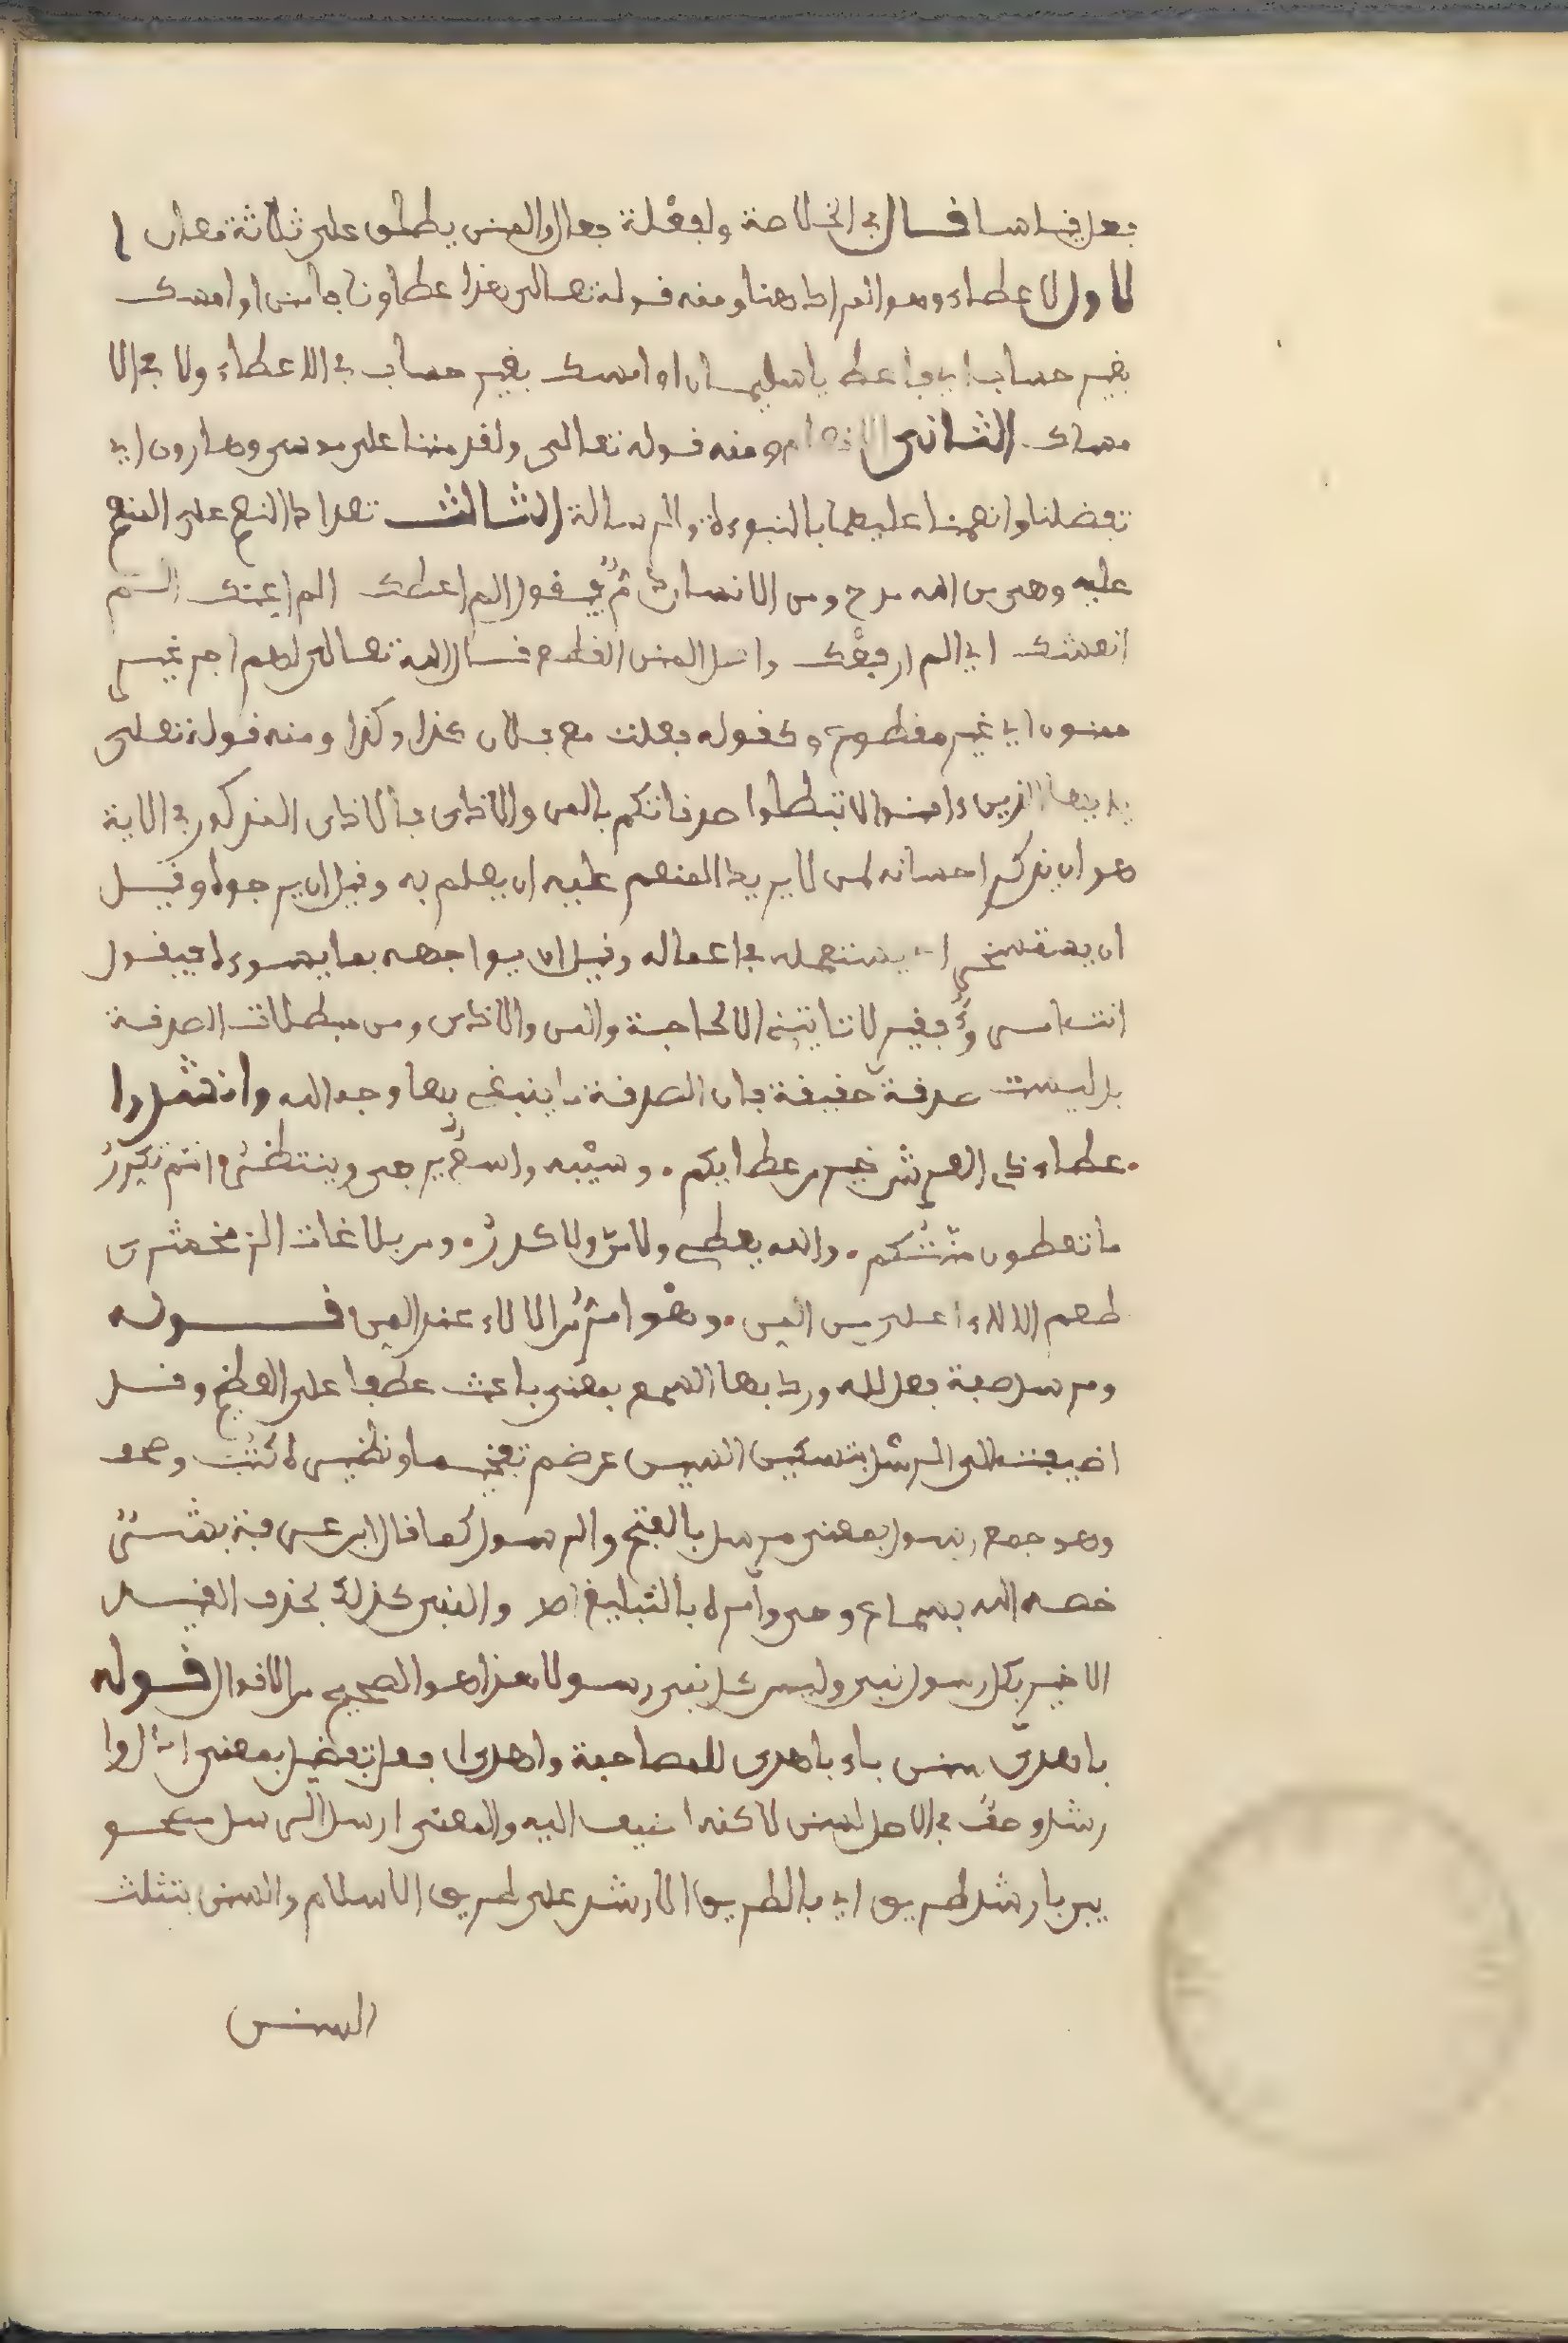 فعل قياسا قال في الخلاصة ولفعلة فعال والمنن يطلق على ثلاثة معان ا
لاول الاعطاء وهو المراد هنا ومنه قوله تعالى هذا عطاونا فامنن او امسك
بغير حساب اي فاعط يا سليمان او امسك بغير حساب في الاعطاء ولا في الا
مساك الثاني الانعام ومنه قوله تعالى ولقد مننا على موسى وهارون اي
تفضلنا وانعمنا عليهما بالنبوءة والرسالة الثالث تعداد النعم على المنعم
عليه وهي من الله مدح ومن الانسان ذم فيقول الم اعطك الم اعنك الم
انعشك اي الم ارفعك واصل المنن القطع قال الله تعالى لهم اجر غير
ممنون اي غير مقطوع وكقوله فعلت مع فلان كذا وكذا ومنه قوله تعلى
يا ايها الذين ءامنوا لا تبطلوا صدقاتكم بالمن والاذى فالاذى المذكور في الاية
هو ان يذكر احسانه لمن لا يريد المنعم عليه ان يعلم به وقيل ان يرجوه وقيل
ان يستسخى اي يستعمله في اعماله وقيل ان يواجهه بما يسوءه فيقول
انت فقير لا تاتيني الا لحاجة والمن والاذى ومن مبطلات الصدقة
بل ليست صدقة حقيقة فان الصدقة ما ينبغى بها وجه الله وانشدوا
عطاء ذي العرش خير من عطايكم • وسيبه واسع يرجى وينتظر وانتم يكدر
ما تعطون منكم • والله يعطي ولا من ولا كدر • ومن بلاغات الزمخشري
طعم الالاء احلى من المن • وهو امر من الالاء عند المن قوله
ومرسل صفة فعل لله ورد بها السمع بمعنى باعث عطفا على المعطي وقد
اضيفت الى الرسل بتسكين السين عرضم تخفيفا ونظيره كتب وصحف
وهو جمع رسول بمعنى مرسل بالفتح والرسول كما قال ابن عرفة بشر
خصه الله بسماع وحي وامره بالتبليغ اهـ والنبي كذلك بحذف القيد
الاخير فكل رسول نبي وليس كل نبي رسولا هذا هو الصحيح من الاقوال قوله
باهدى سنن باء باهدى للمصاحبة واهدى افعل تفضيل بمعنى
رشد وحقه في الاصل لسنن لاكنه اضيف اليه والمعنى ارسل الرسل مصحو
بين بارشد طريق اي بالطريق الارشد على طريق الاسلام والسنن بتثليث
السنن